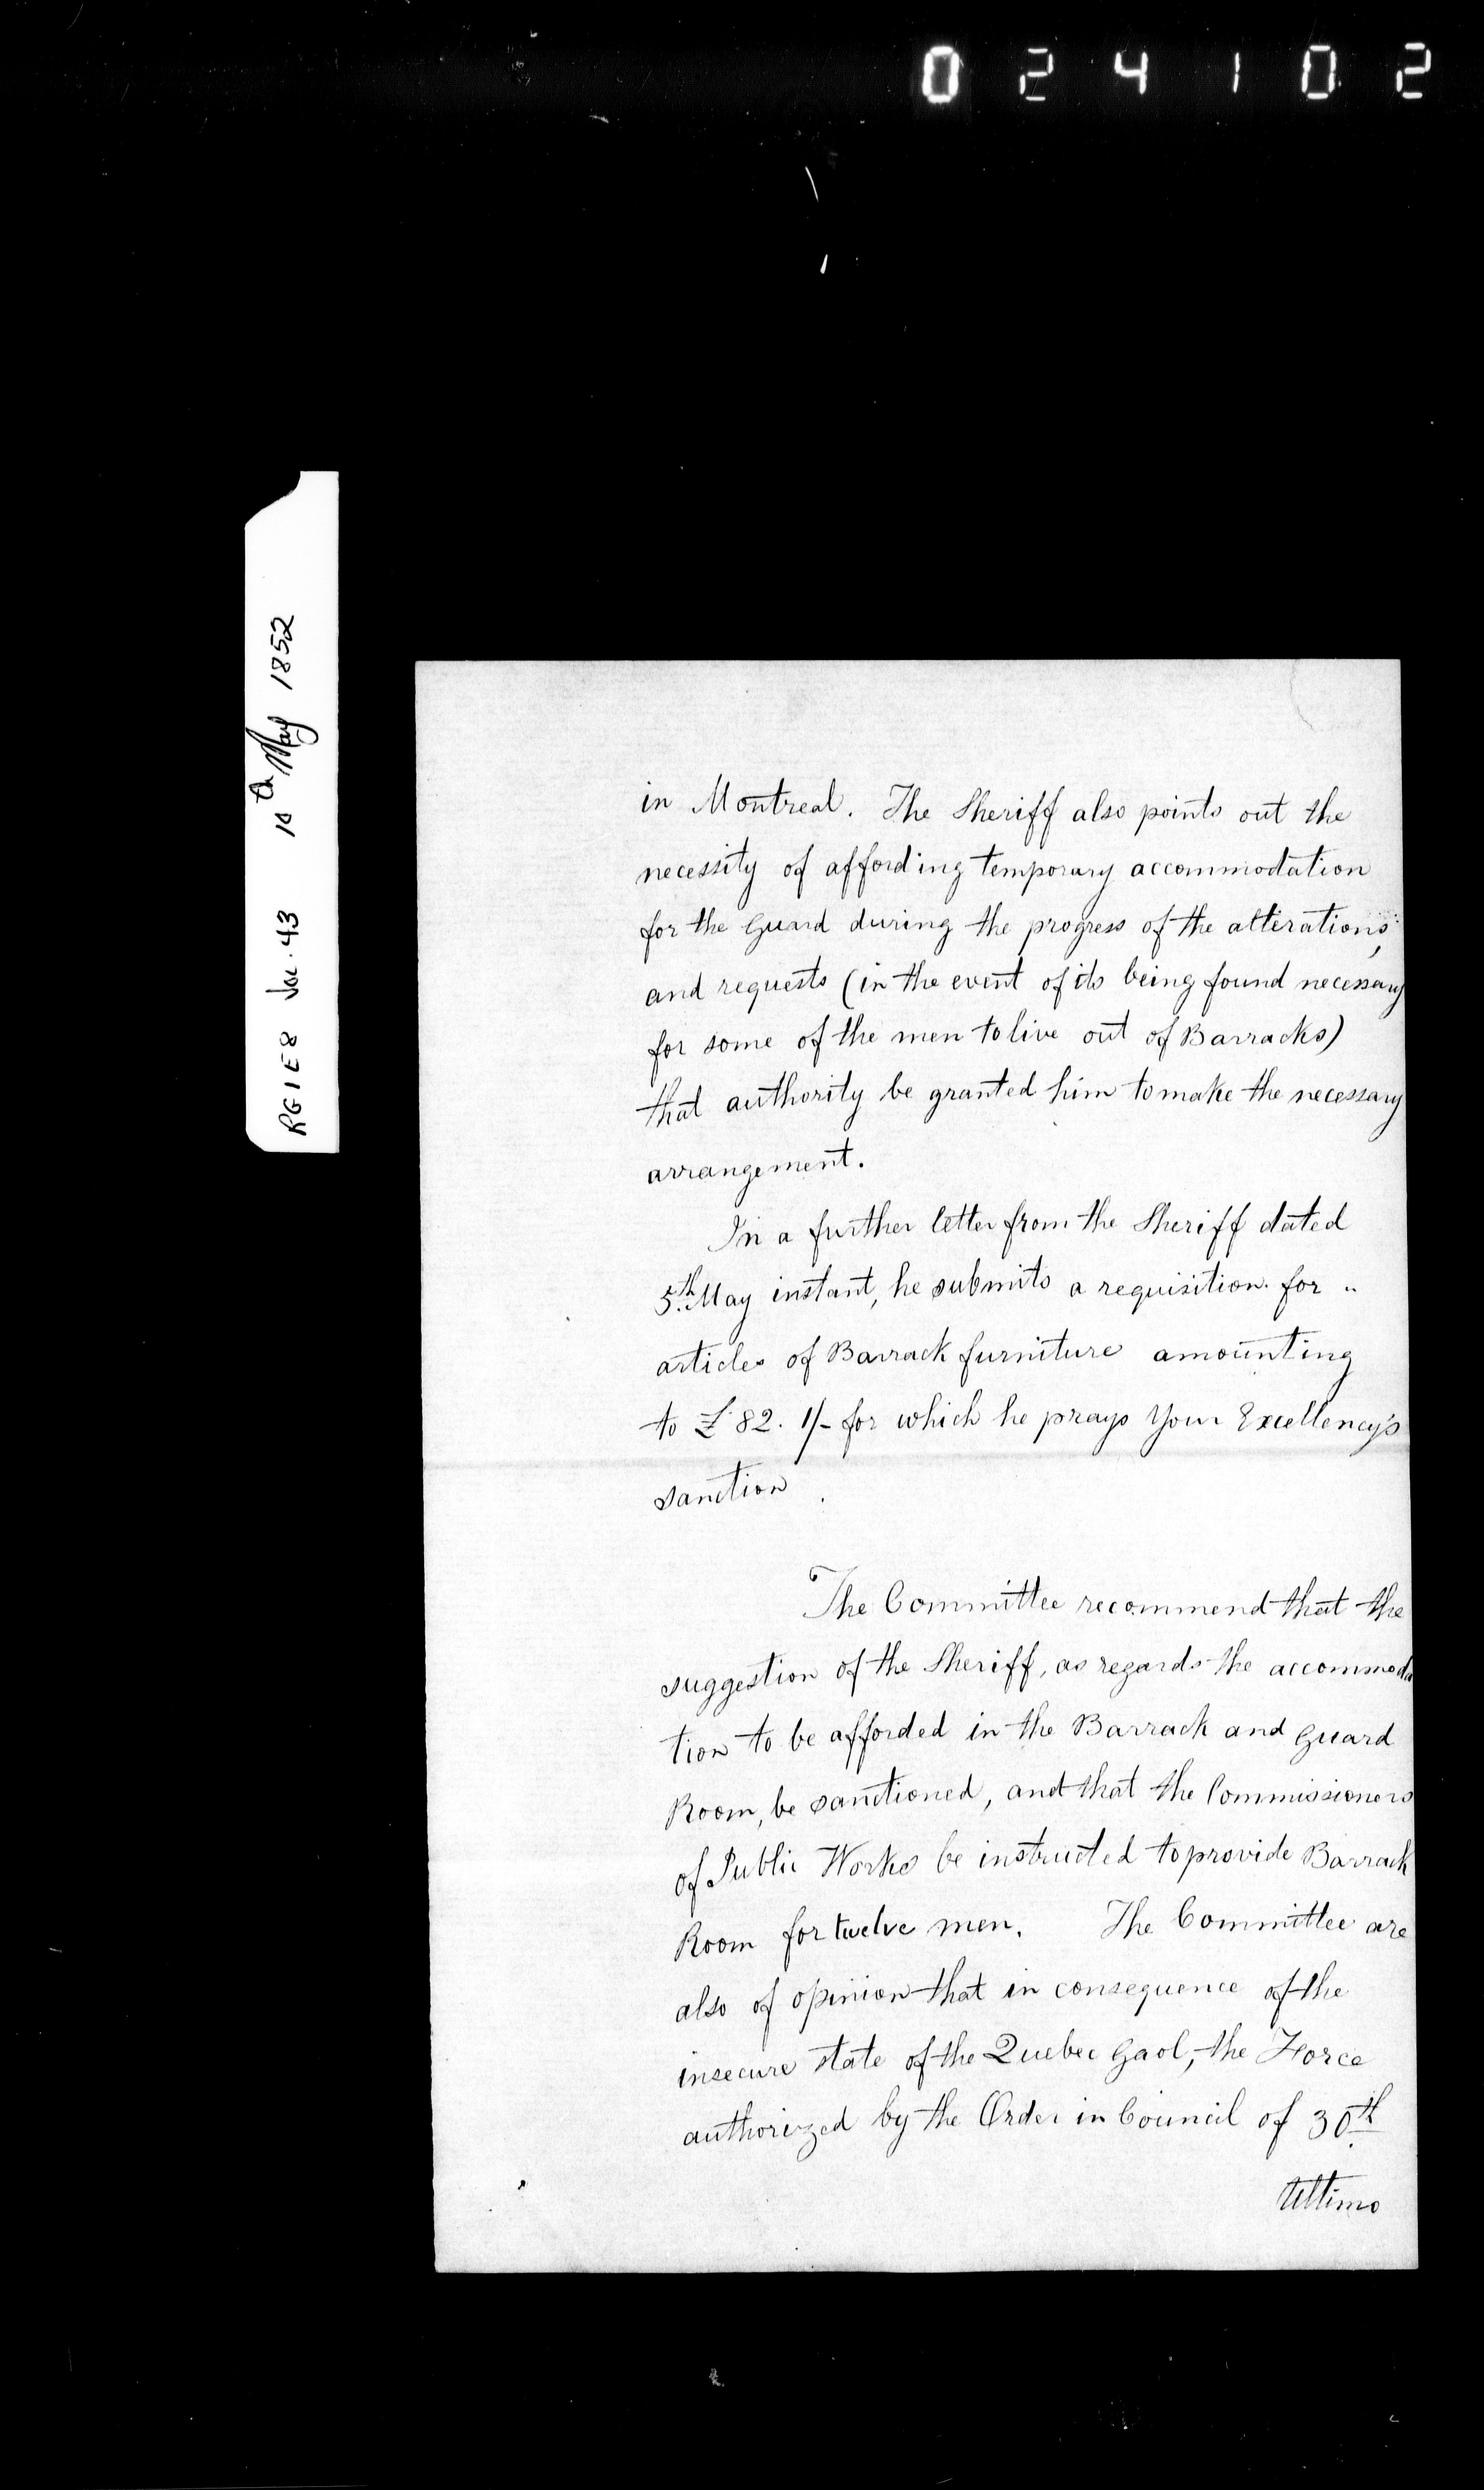 024102
RG1E8 Vol. 43 10th May 1852
in Montreal. The Sheriff also points out the
necessity of affording temporary accommodation
for the Guard during the progress of the alterations,
and requests (in the event of its being found necessary
for some of the men to live out of Barracks)
that authority be granted him to make the necessary
arrangement.
In a further letter from the Sheriff dated
5th May instant, he submits a requisition for "
articles of Barrack furniture amounting
to £82. 1/- for which he prays Your Excellency's
sanction.
The Committee recommend that the
suggestion of the Sheriff, as regards the accommoda
tion to be afforded in the Barrack and Guard
Room, be sanctioned, and that the Commissioners
of Public Works be instructed to provide Barrack
Room for twelve men. The Committee are
also of opinion that in consequence of the
insecure state of the Quebec Gaol, the Force
authorized by the Order in Council of 30th
Ultimo